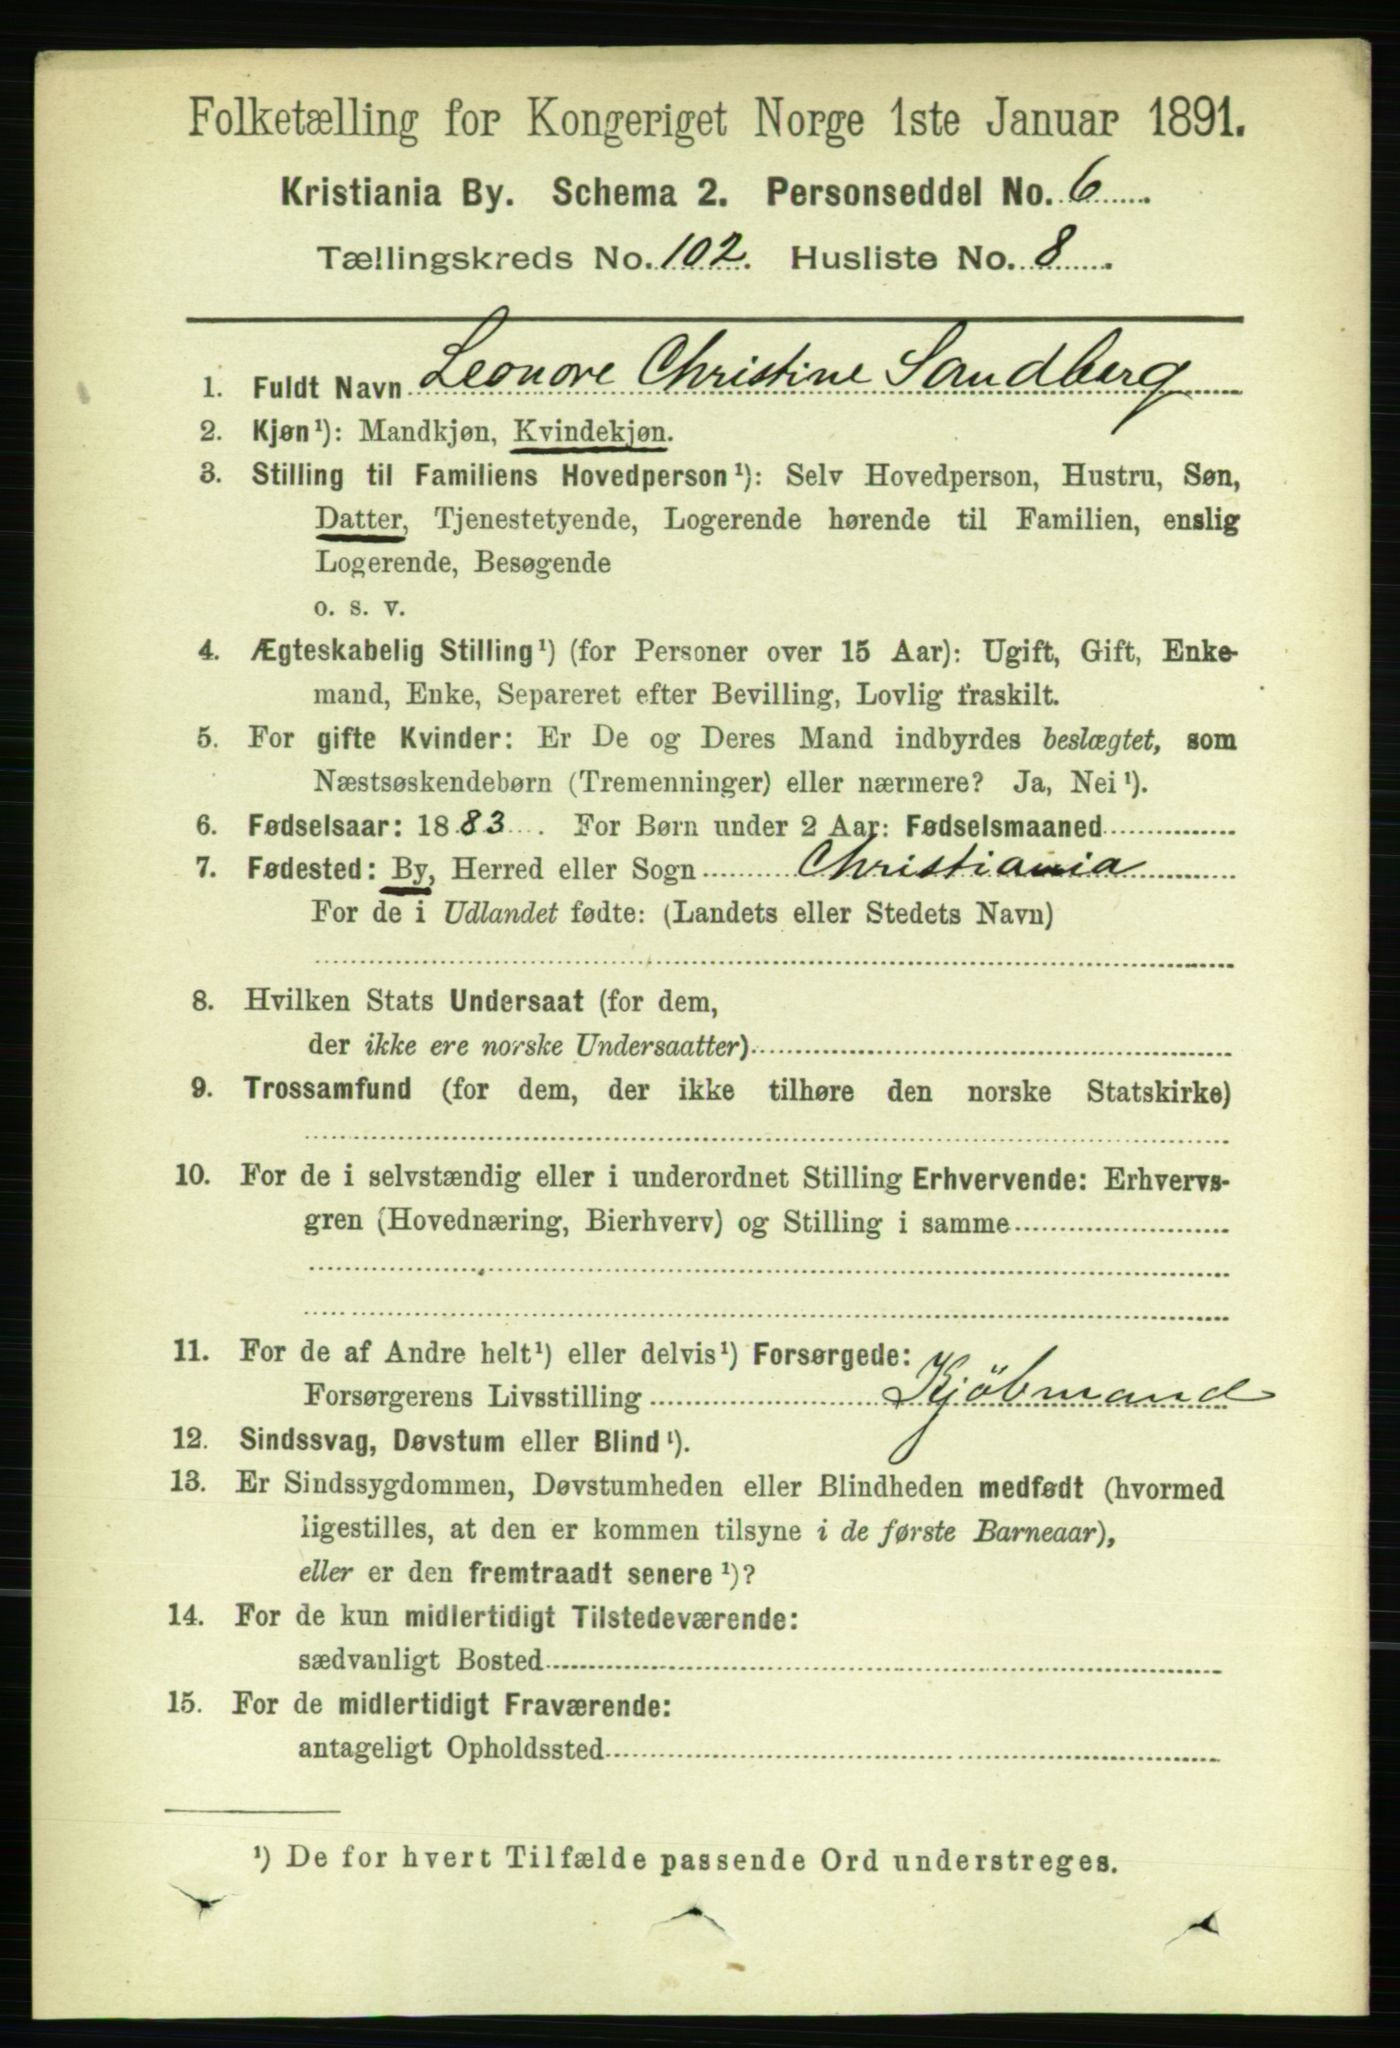 Folketælling for Kongeriget Norge 1ste Januar 1891.
Kristiania By. Schema 2. Personseddel No. 6
Tællingskreds No. 102. Husliste No. 8
1. Fuldt Navn Leonore Christine Sandberg
2. Kjøn¹): Mandkjøn, Kvindekjøn.
3. Stilling til Familiens Hovedperson¹): Selv Hovedperson, Hustru, Søn,
Datter, Tjenestetyende, Logerende hørende til Familien, enslig
Logerende, Besøgende
o. s. v.
4. Ægteskabelig Stilling¹) (for Personer over 15 Aar): Ugift, Gift, Enke-
mand, Enke, Separeret efter Bevilling, Lovlig fraskilt.
5. For gifte Kvinder: Er De og Deres Mand indbyrdes beslægtet, som
Næstsøskendebørn (Tremenninger) eller nærmere? Ja, Nei¹).
6. Fødselsaar: 1883. For Børn under 2 Aar: Fødselsmaaned
7. Fødested: By, Herred eller Sogn Christiania
For de i Udlandet fødte: (Landets eller Stedets Navn)
8. Hvilken Stats Undersaat (for dem,
der ikke ere norske Undersaatter)
9. Trossamfund (for dem, der ikke tilhøre den norske Statskirke)
10. For de i selvstændig eller i underordnet Stilling Erhvervende: Erhvervs-
gren (Hovednæring, Bierhverv) og Stilling i samme
11. For de af Andre helt¹) eller delvis¹) Forsørgede:
Forsørgerens Livsstilling Kjöbmand
12. Sindssvag, Døvstum eller Blind¹).
13. Er Sindssygdommen, Døvstumheden eller Blindheden medfødt (hvormed
ligestilles, at den er kommen tilsyne i de første Barneaar),
eller er den fremtraadt senere¹)?
14. For de kun midlertidigt Tilstedeværende:
sædvanligt Bosted
15. For de midlertidigt Fraværende:
antageligt Opholdssted
¹) De for hvert Tilfælde passende Ord understreges.